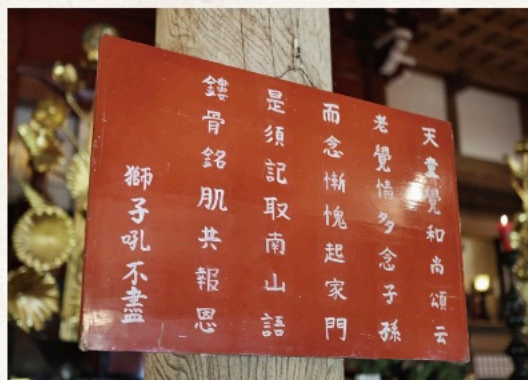 天童覺和尚頌云
老覺情多念子孫
而念慚愧起家門
是須記取南山語
鏤骨銘肌共報恩
獅子吼不盡